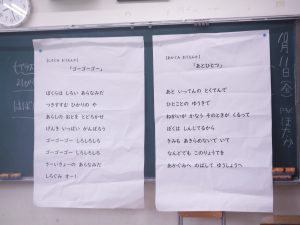 【しろぐみ おうえんか】
「ゴーゴーゴー」
ぼくらは しろい あらなみだ
つきすすむ ひかりの や
あらしの おとを とどろかせ
げんき いっぱい がんばろう
ゴーゴーゴー しろしろしろ
ゴーゴーゴー しろしろしろ
さーいきょーの あらなみだ
しろぐみ オー!
【あかぐみ おうえんか】
「あとひとつ」
あと いってんの とくてんで
ひとことの ゆうきで
ねがいが かなう そのときが くるって
ぼくは しんじてるから
きみも あきらめないで いて
なんどでも このりょうてを
あかぐみへ のばして ゆうしょうへ
10月11日(金)